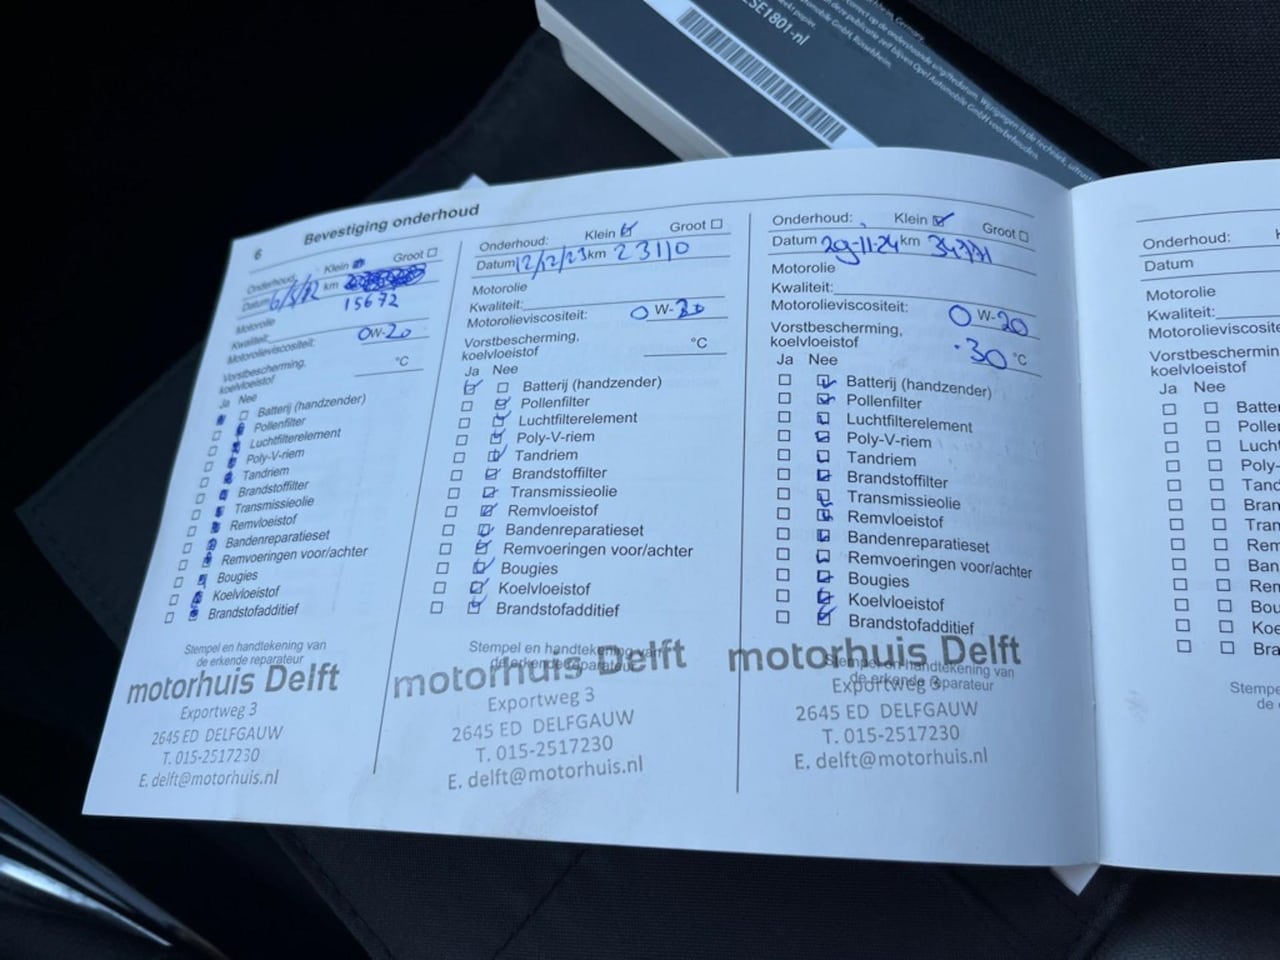 LSE1801-nl
6 Bevestiging onderhoud
Onderhoud: Klein Groot
Datum km
15672
Motorolie
Kwaliteit:
Motorolieviscositeit: 0W-20
Vorstbescherming,
koelvloeistof °C
Ja Nee
Batterij (handzender)
Pollenfilter
Luchtfilterelement
Poly-V-riem
Tandriem
Brandstoffilter
Transmissieolie
Remvloeistof
Bandenreparatieset
Remvoeringen voor/achter
Bougies
Koelvloeistof
Brandstofadditief
Stempel en handtekening van
de erkende reparateur
motorhuis Delft
Exportweg 3
2645 ED DELFGAUW
T. 015-2517230
E. delft@motorhuis.nl
Onderhoud: Klein Groot
Datum 12/12/23 km 23110
Motorolie
Kwaliteit:
Motorolieviscositeit: 0 W-20
Vorstbescherming,
koelvloeistof °C
Ja Nee
Batterij (handzender)
Pollenfilter
Luchtfilterelement
Poly-V-riem
Tandriem
Brandstoffilter
Transmissieolie
Remvloeistof
Bandenreparatieset
Remvoeringen voor/achter
Bougies
Koelvloeistof
Brandstofadditief
Stempel en handtekening van
de erkende reparateur
motorhuis Delft
Exportweg 3
2645 ED DELFGAUW
T. 015-2517230
E. delft@motorhuis.nl
Onderhoud: Klein Groot
Datum 29-11-24 km 34771
Motorolie
Kwaliteit:
Motorolieviscositeit: 0 W-20
Vorstbescherming,
koelvloeistof -30 °C
Ja Nee
Batterij (handzender)
Pollenfilter
Luchtfilterelement
Poly-V-riem
Tandriem
Brandstoffilter
Transmissieolie
Remvloeistof
Bandenreparatieset
Remvoeringen voor/achter
Bougies
Koelvloeistof
Brandstofadditief
Stempel en handtekening van
de erkende reparateur
motorhuis Delft
Exportweg 3
2645 ED DELFGAUW
T. 015-2517230
E. delft@motorhuis.nl
Onderhoud: K
Datum
Motorolie
Kwaliteit:
Motorolieviscosite
Vorstbeschermin
koelvloeistof
Ja Nee
Batte
Pollen
Lucht
Poly-
Tand
Bran
Tran
Rem
Ban
Ren
Bou
Koe
Bra
Stempe
de